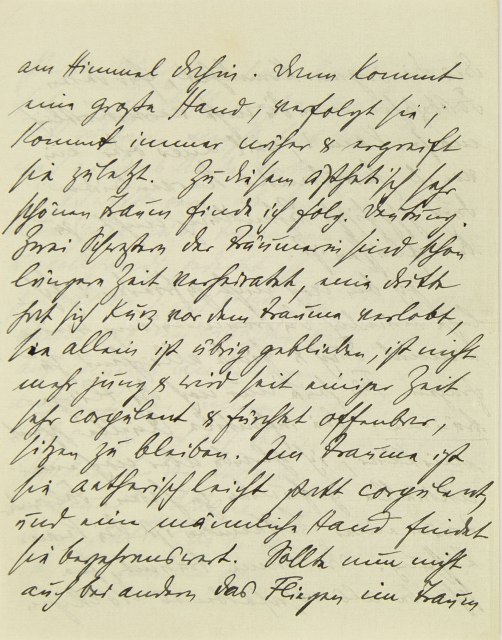 am Himmel dahin. Dann kommt
eine große Hand, verfolgt sie,
kommt immer näher & ergreift
sie zuletzt. Zu diesem ästhetisch sehr
schönen Traum finde ich folg. Deutung.
Zwei Schwestern der Träumerin sind schon
längere Zeit verheiratet, eine dritte
hat sich kurz vor dem Traume verlobt,
sie allein ist übrig geblieben, ist nicht
mehr jung & wird seit einiger Zeit
sehr corpulent & fürchtet offenbar,
sitzen zu bleiben. Im Traume ist
sie aetherisch leicht statt corpulent,
und eine männliche Hand findet
sie begehrenswert. Sollte nun nicht
auch bei andern das Fliegen im Traum